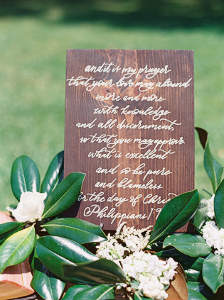 and it is my prayer
that your love may abound
more and more
with knowledge
and all discernment,
so that you may approve
what is excellent
and so be pure
and blameless
in the day of Christ
Philippians 1:9